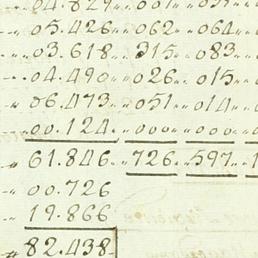 04.829 001
05.426 062 064
03.618 315 083
04.490 026 015
06.473 051 014
00.124 000 000
61.846 726 597
00.726
19.866
82.438